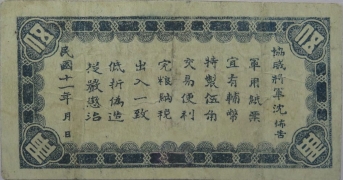 協威將軍沈佈告
軍用紙票
宜有輔幣
特製伍角
交易便利
完粮納稅
出入一致
低折偽造
提藏懲治
民國十一年 月 日